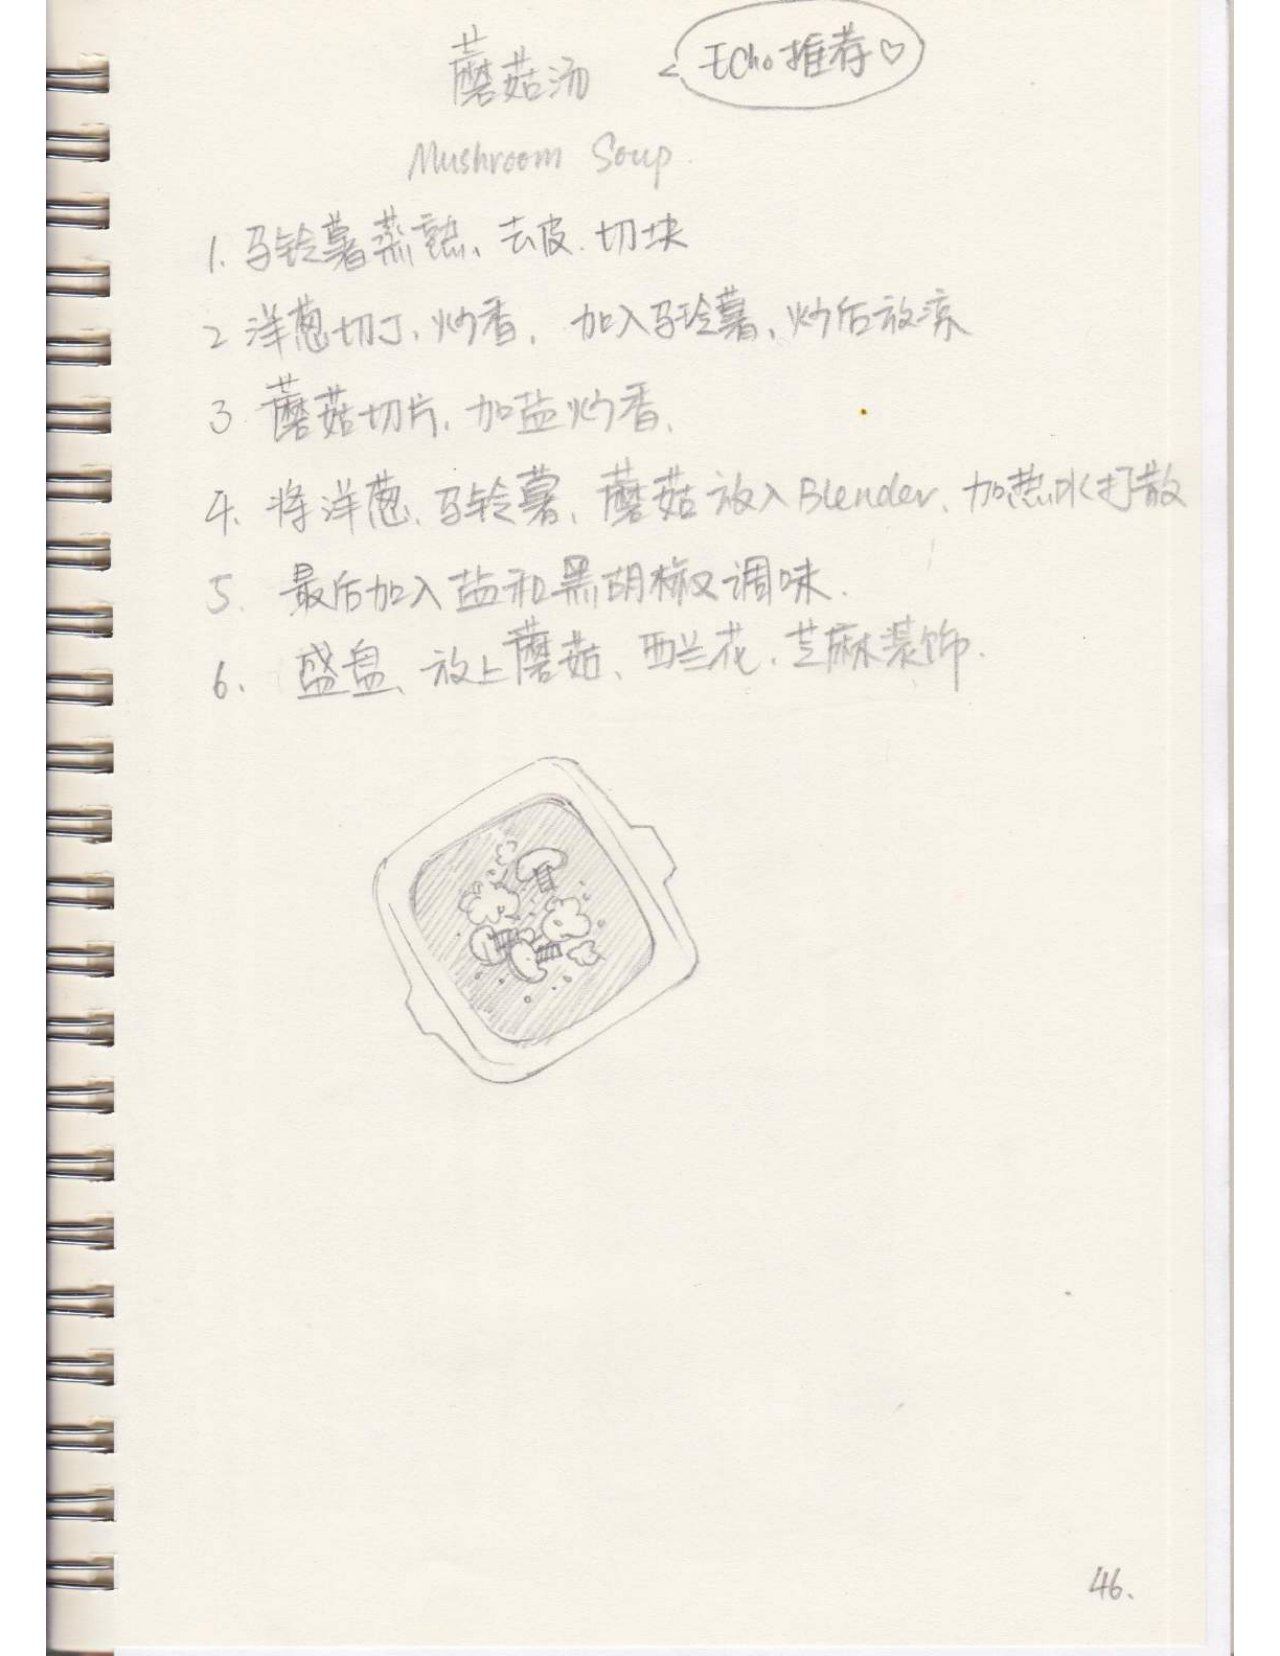 蘑菇汤
Echo推荐♡
Mushroom Soup.
1. 马铃薯蒸熟、去皮.切块
2 洋葱切丁,炒香, 加入马玲薯、炒后放凉
3 蘑菇切片,加盐炒香,
4. 将洋葱、马铃薯、蘑菇放入Blender、加热水打散
5. 最后加入盐和黑胡椒调味.
6. 盛盘、放上蘑菇、西兰花、芝麻装饰.
46.